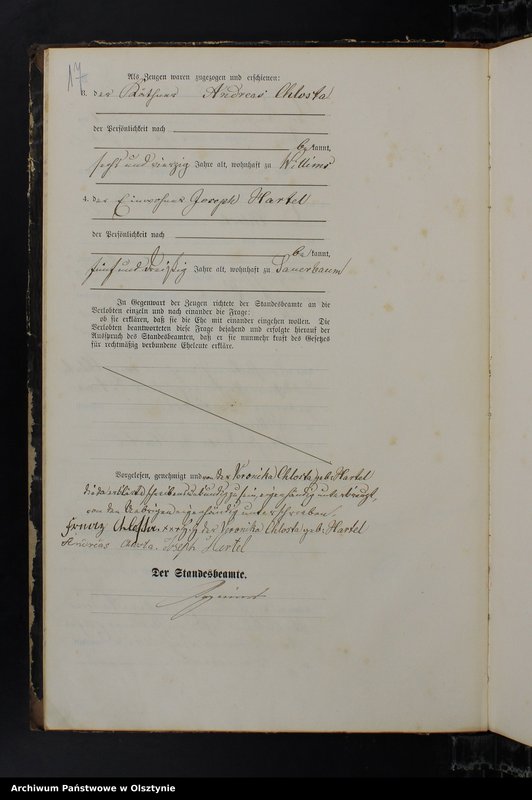 17
Als Zeugen waren zugezogen und erschienen:
3. der Käthner Andreas Chlosta
der Persönlichkeit nach
bekannt,
sechs und vierzig Jahre alt, wohnhaft zu Willims
4. der Einwohner Joseph Hartel
der Persönlichkeit nach
bekannt,
fünf und dreißig Jahre alt, wohnhaft zu Lauerbaum
In Gegenwart der Zeugen richtete der Standesbeamte an die
Verlobten einzeln und nach einander die Frage:
ob sie erklären, daß sie die Ehe mit einander eingehen wollen. Die
Verlobten beantworteten diese Frage bejahend und erfolgte hierauf der
Ausspruch des Standesbeamten, daß er sie nunmehr kraft des Gesetzes
für rechtmäßig verbundene Eheleute erkläre.
Vorgelesen, genehmigt und von der Veronika Chlosta geb. Hartel
die da erklärte schreibensunkundig zu sein eigenhändig unterkreuzt,
von den Uebrigen eigenhändig unterschrieben.
xxx der Veronika Chlosta geb. Hartel
Andreas Chlosta. Joseph Hartel
Der Standesbeamte.
Archiwum Państwowe w Olsztynie